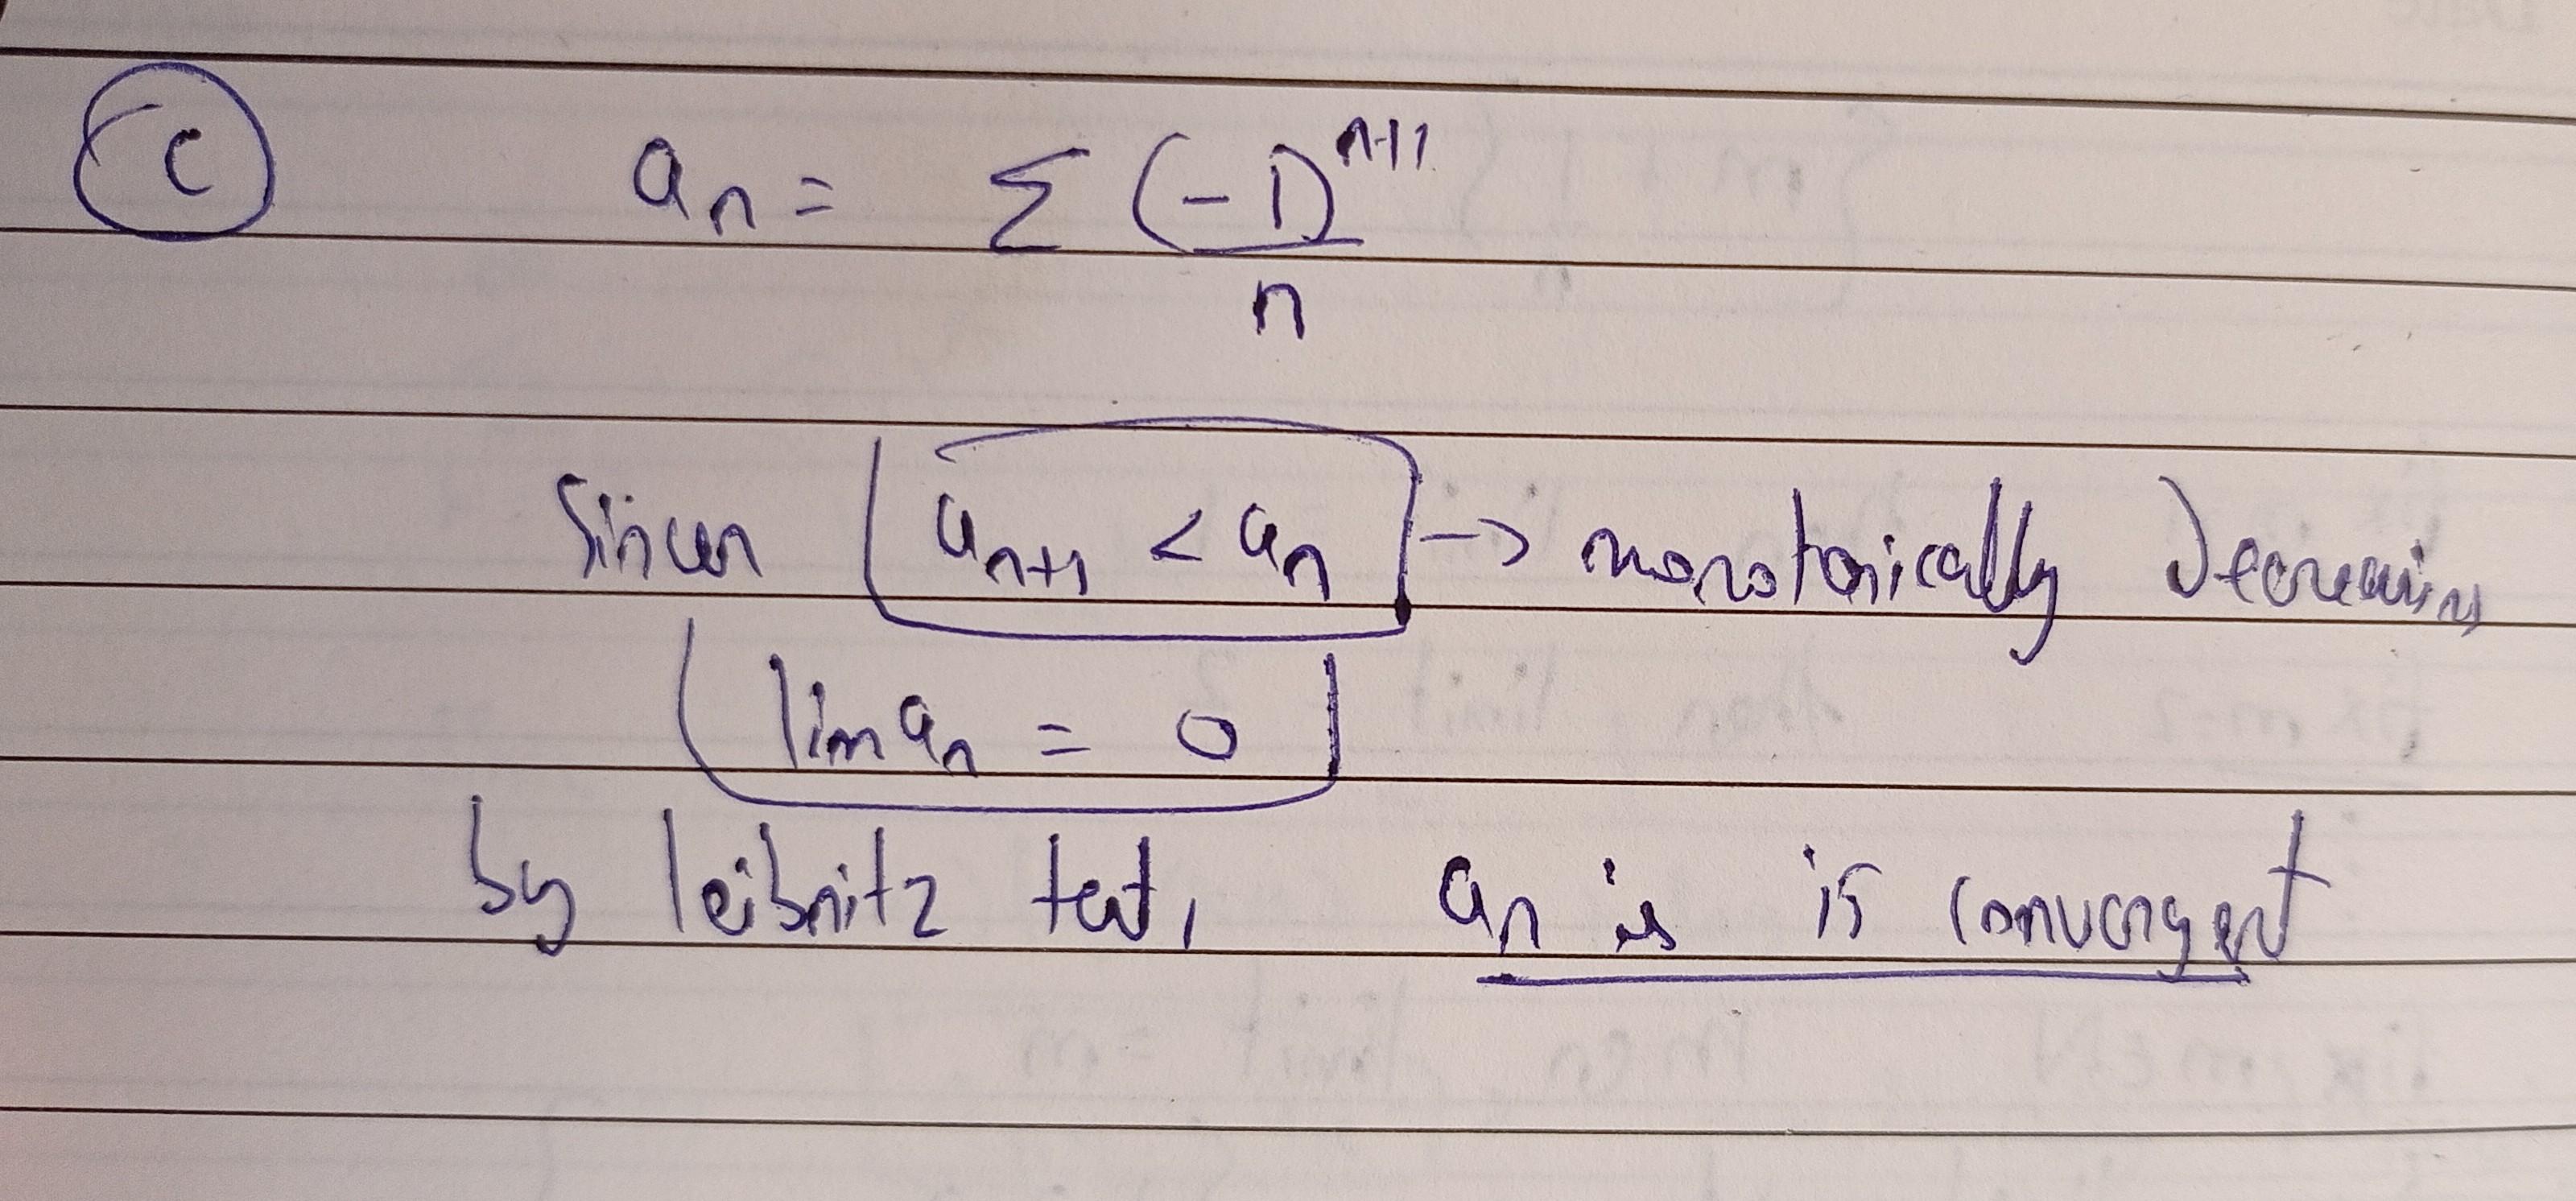 (c) aₙ = Σ (-1)ⁿ⁺¹ / n
Sincen aₙ₊₁ < aₙ → monotonically Decreasing
lim aₙ = 0
by leibnitz test, aₙ is is convergent